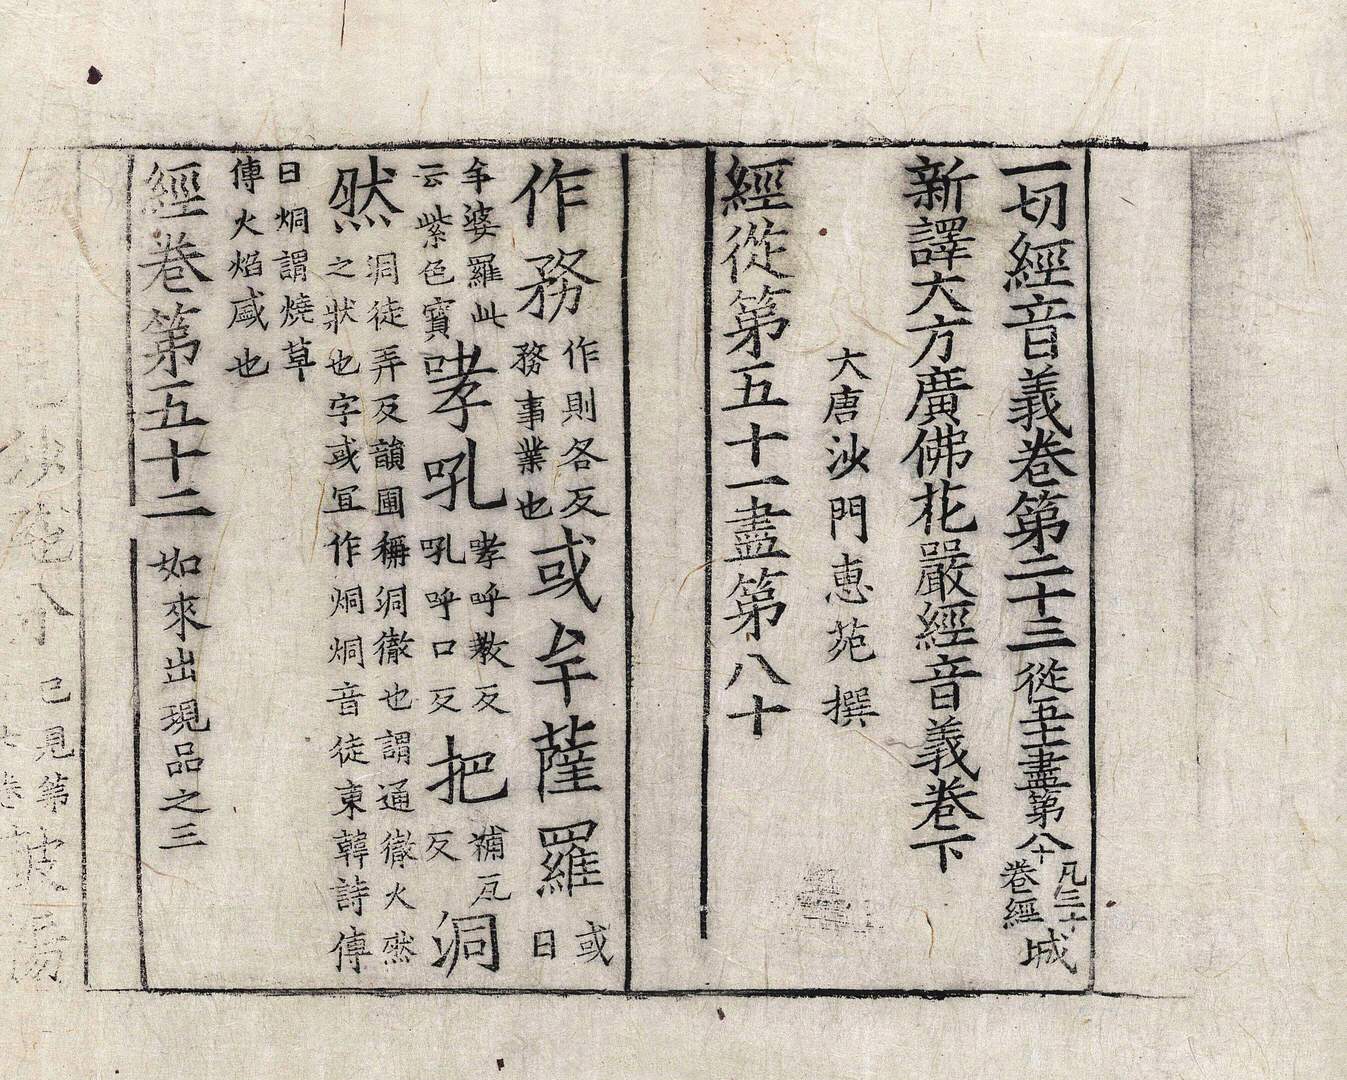 一切經音義卷第二十三從五十一盡第八十凡三十卷經城
新譯大方廣佛花嚴經音義卷下
大唐沙門惠苑撰
經從第五十一盡第八十
作務作則各反務事業也或牟薩羅或曰
牟婆羅此云紫色寶哮吼哮呼教反吼呼口反把補瓦反洞
然洞徒弄反韻圃稱洞徹也謂通徹火然之狀也字或冝作烔烔音徒東韓詩傳
曰烔謂燒草傳火焰盛也
經卷第五十二如來出現品之三
已見第